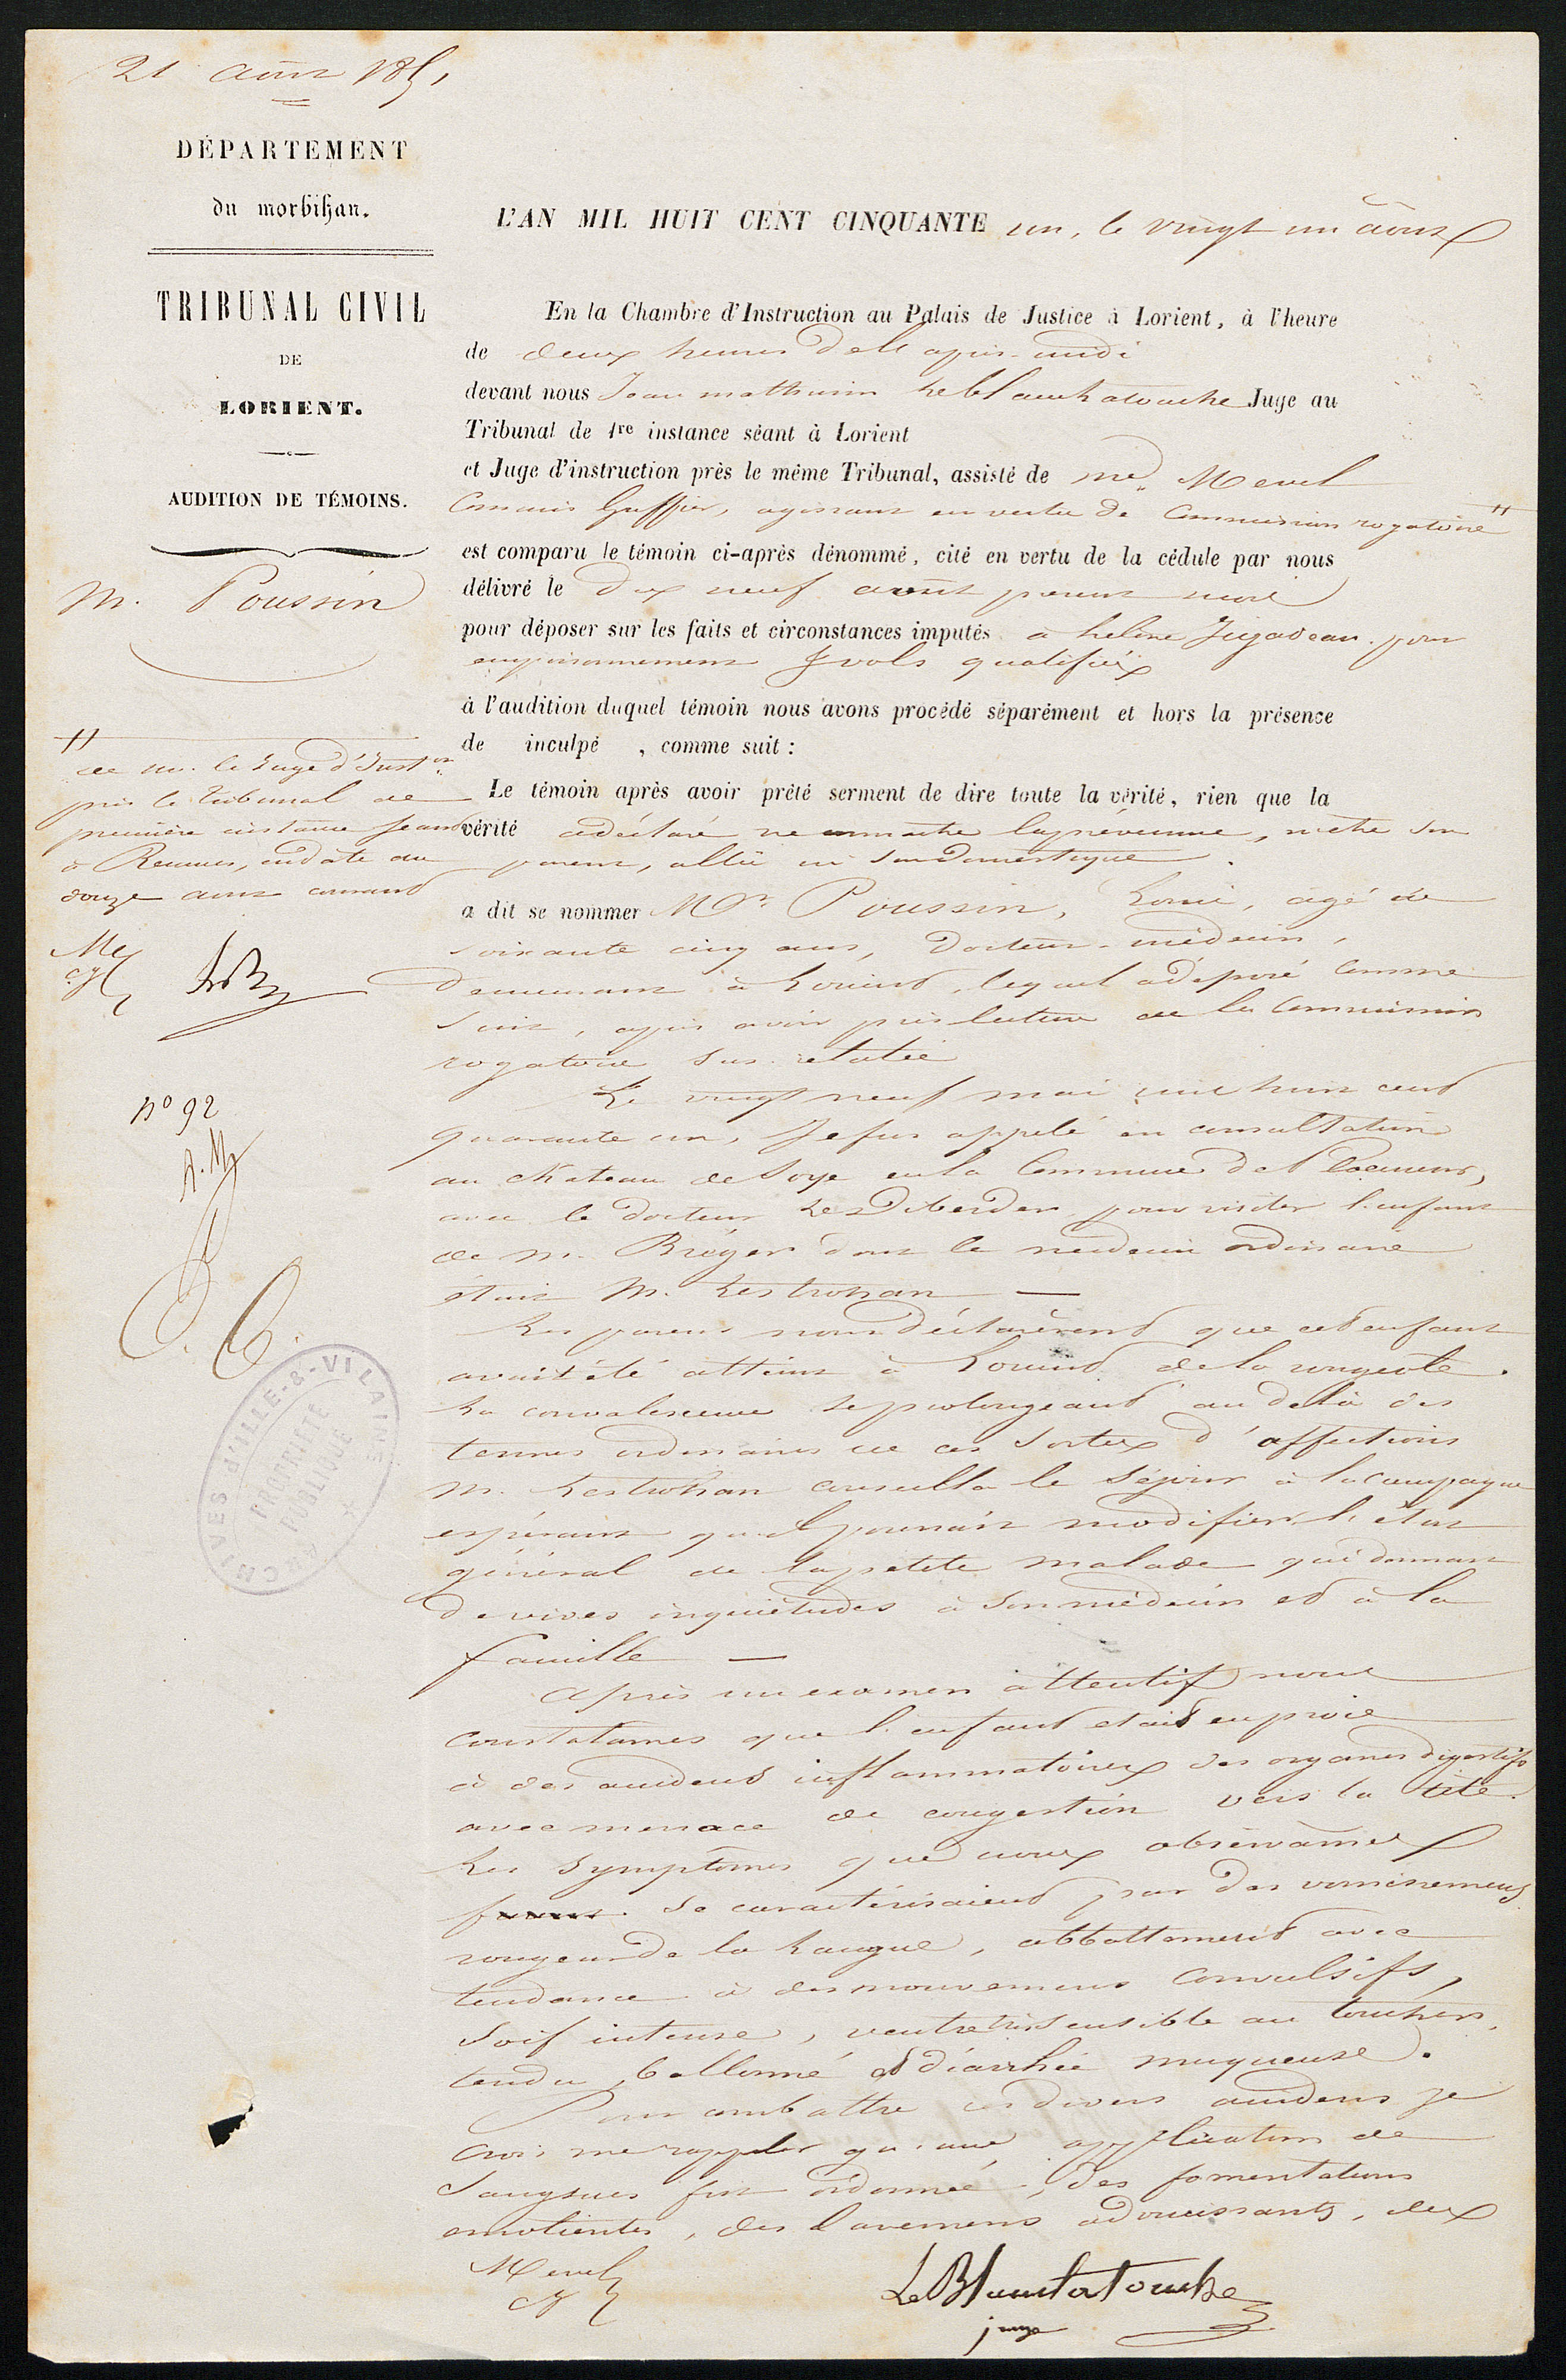 21 août 1851
DÉPARTEMENT
du morbihan.
TRIBUNAL CIVIL
DE
LORIENT.
AUDITION DE TÉMOINS.
M. Poussin
L'AN MIL HUIT CENT CINQUANTE un, le vingt un août
En la Chambre d'Instruction au Palais de Justice à Lorient, à l'heure
de deux heures de l'après-midi
devant nous Jean mathurin Le Blanchatouche Juge au
Tribunal de 1re instance séant à Lorient
et Juge d'instruction près le même Tribunal, assisté de Mevel
Commis Greffier, agissant en vertu de Commission rogatoire "
est comparu le témoin ci-après dénommé, cité en vertu de la cédule par nous
délivré le dix neuf août présent mois
pour déposer sur les faits et circonstances imputés à helène Jégadeau. pour
empoisonnement & vols qualifiés
à l'audition duquel témoin nous avons procédé séparément et hors la présence
de inculpé , comme suit :
Le témoin après avoir prêté serment de dire toute la vérité, rien que la
vérité a déclaré ne connaitre la prévenue, n'etre son
parent, allié ni son domestique.
a dit se nommer Mr. Poussin, Louis, agé de
soixante cinq ans, Docteur-médecin,
Demeurant à Lorient, lequel a déposé Comme
Suit, après avoir pris lecture de la Commission
rogatoire sus-relatée
Le vingt neuf mai mil huit cent
quarante un, Je fus appelé en consultation
au chateau de Soye en la Commune de Ploemeur,
avec le docteur Le Diberder pour visiter l'enfant
de M. Bréger dont le médecin ordinaire
était M. Lestrohan —
Les parens nous déclarèrent que cet enfant
avait été atteint à Lorient de la rougeole.
La convalescence se prolongeant au delà des
termes ordinaires de ces sortes d'affections
M. Lestrohan conseilla le séjour à la campagne
espérant qu'il pourrait modifier l'état
général de la petite malade qui donnait
de vives inquiétudes à son médecin et à la
famille —
après un examen attentif nous
constatames que l'enfant etait en proie
à des accidens inflammatoires des organes digestifs
avec menace de congestion vers la tête.
Les symptômes que nous observâmes
se caractérisaient par des vomissemens
rougeur de la Langue, abbattement avec
tendance à des mouvemens Convulsifs,
Soif intense, ventre très sensible au toucher,
tendu, ballonné et diarrhée muqueuse.
Pour combattre ces divers accidens je
crois me rappeler qu'une application de
Sangsues fut ordonnée, Des fomentations
emolientes, des lavemens adoucissants, des
Mevel
cg
Le Blanchatouche
juge
"
de M. le Juge d'Inston
près le tribunal de
première instance séant
à Rennes, en date du
douze août courant
nº 92
ARCHIVES d'ILLE-&-VILAINE
PROPRIÉTÉ
PUBLIQUE